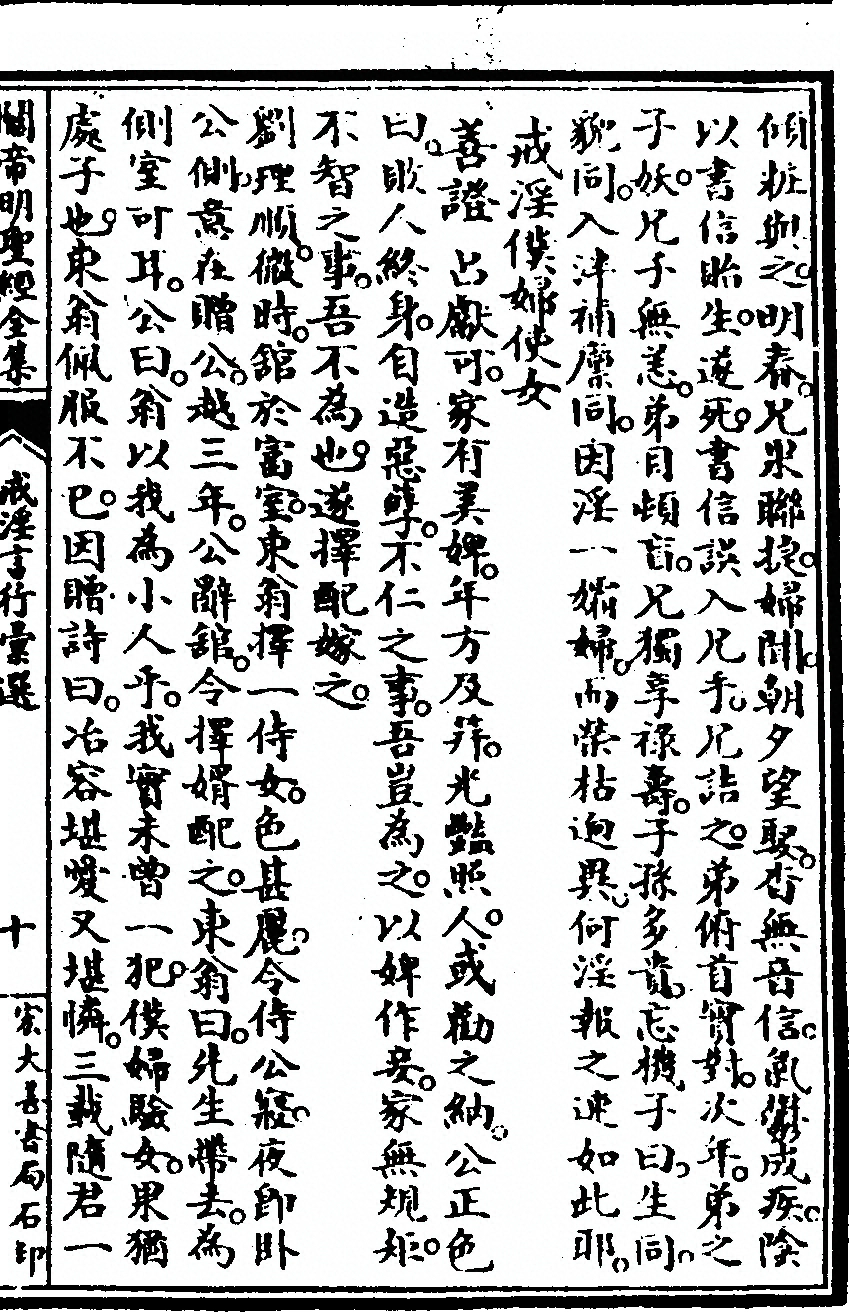 傾粧與之。明春。兄果聯捷。婦聞。朝夕望娶。杳無音信。氣鬱成疾。陰
以書信貽生。遂死。書信誤入兄手。兄詰之。弟俯首實對。次年。弟之
子妖。兄子無恙。弟目頓盲。兄獨享祿壽。子孫多貴。忘機子曰。生同
貌同。入泮補廩同。因淫一孀婦。而榮枯迥異。何淫報之速如此耶。
戒淫僕婦使女
善證　占獻可。家有美婢。年方及笄。光豔照人。或勸之納。公正色
曰。敗人終身。自造惡孽。不仁之事。吾豈為之。以婢作妾。家無規矩。
不智之事。吾不為也。遂擇配嫁之。
劉理順微時。舘於富室。東翁擇一侍女。色甚麗。令侍公寢。夜卽臥
公側。意在贈公。越三年。公辭舘。令擇婿配之。東翁曰。先生帶去。為
側室可耳。公曰。翁以我為小人乎。我實未曾一犯。僕婦驗女。果猶
處子也。東翁佩服不已。因贈詩曰。冶容堪愛又堪憐。三載隨君一
關帝明聖經全集
戒淫言行彙選
十
宏大善書局石印